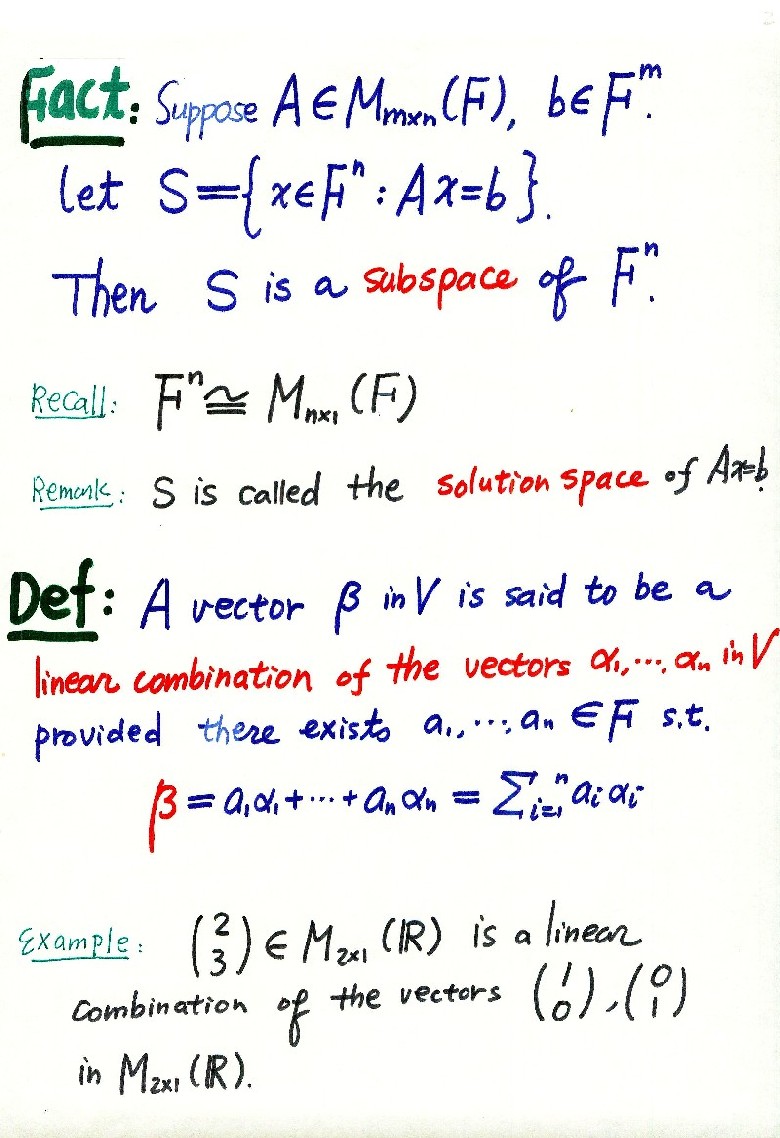 Fact: Suppose A ∈ Mₘₓₙ(F), b ∈ Fᵐ.
Let S = {x ∈ Fⁿ : Ax = b}.
Then S is a subspace of Fⁿ.
Recall: Fⁿ ≅ Mₙₓ₁(F)
Remark: S is called the solution space of Ax=b.
Def: A vector β in V is said to be a
linear combination of the vectors α₁, ⋯, αₙ in V
provided there exists a₁, ⋯, aₙ ∈ F s.t.
β = a₁α₁ + ⋯ + aₙαₙ = ∑ᵢ₌₁ⁿ aᵢαᵢ
Example: (2 3) ∈ M₂ₓ₁(ℝ) is a linear
combination of the vectors (1 0), (0 1)
in M₂ₓ₁(ℝ).